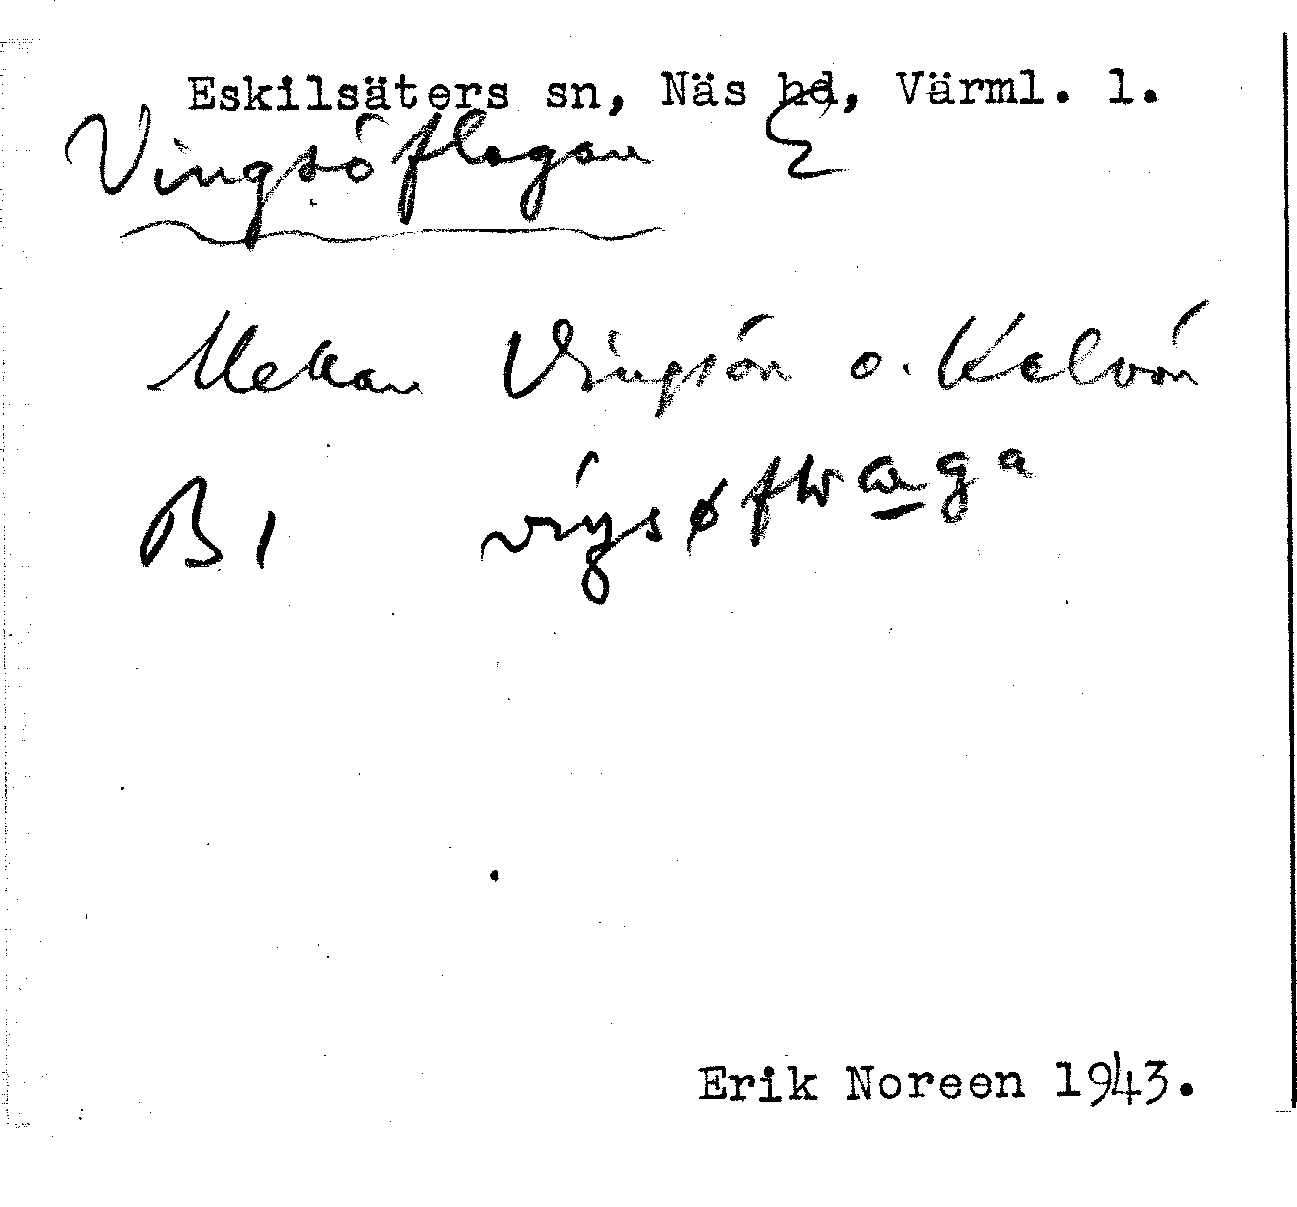 Eskilsäters sn, Näs hd, Värml. l.
Vingsöflagan E
Mellan Vingsön o. Kalvön
B1
Erik Noreen 1943.